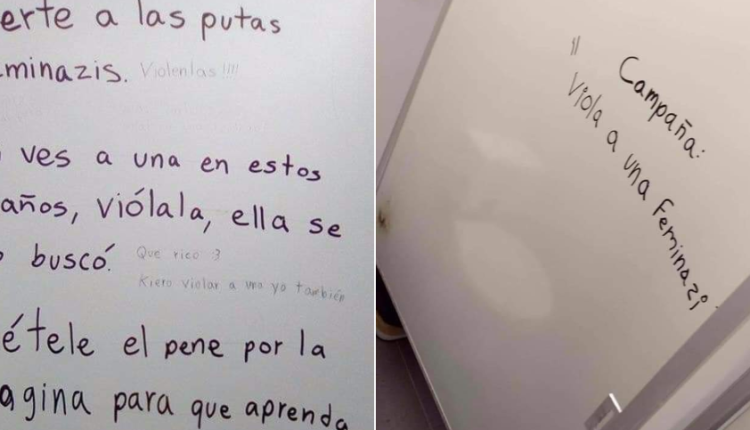 erte a las putas
minazis. Violenlas !!!!
ves a una en estos
años, viólala, ella se
o buscó. Que rico :3
Kiero violar a una yo también
étele el pene por la
agina para que aprenda
"
Campaña:
Viola a una Feminazi